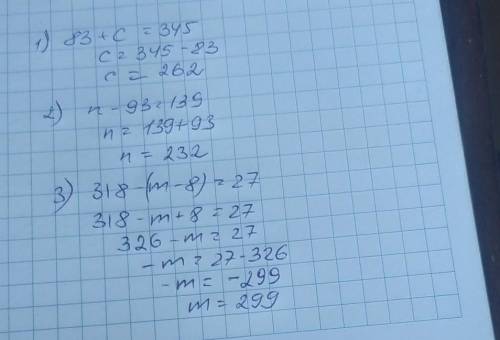 1) 83 + c = 345
c = 345 - 83
c = 262
2) n - 93 = 139
n = 139 + 93
n = 232
3) 318 - (m - 8) = 27
318 - m + 8 = 27
326 - m = 27
- m = 27 - 326
- m = - 299
m = 299